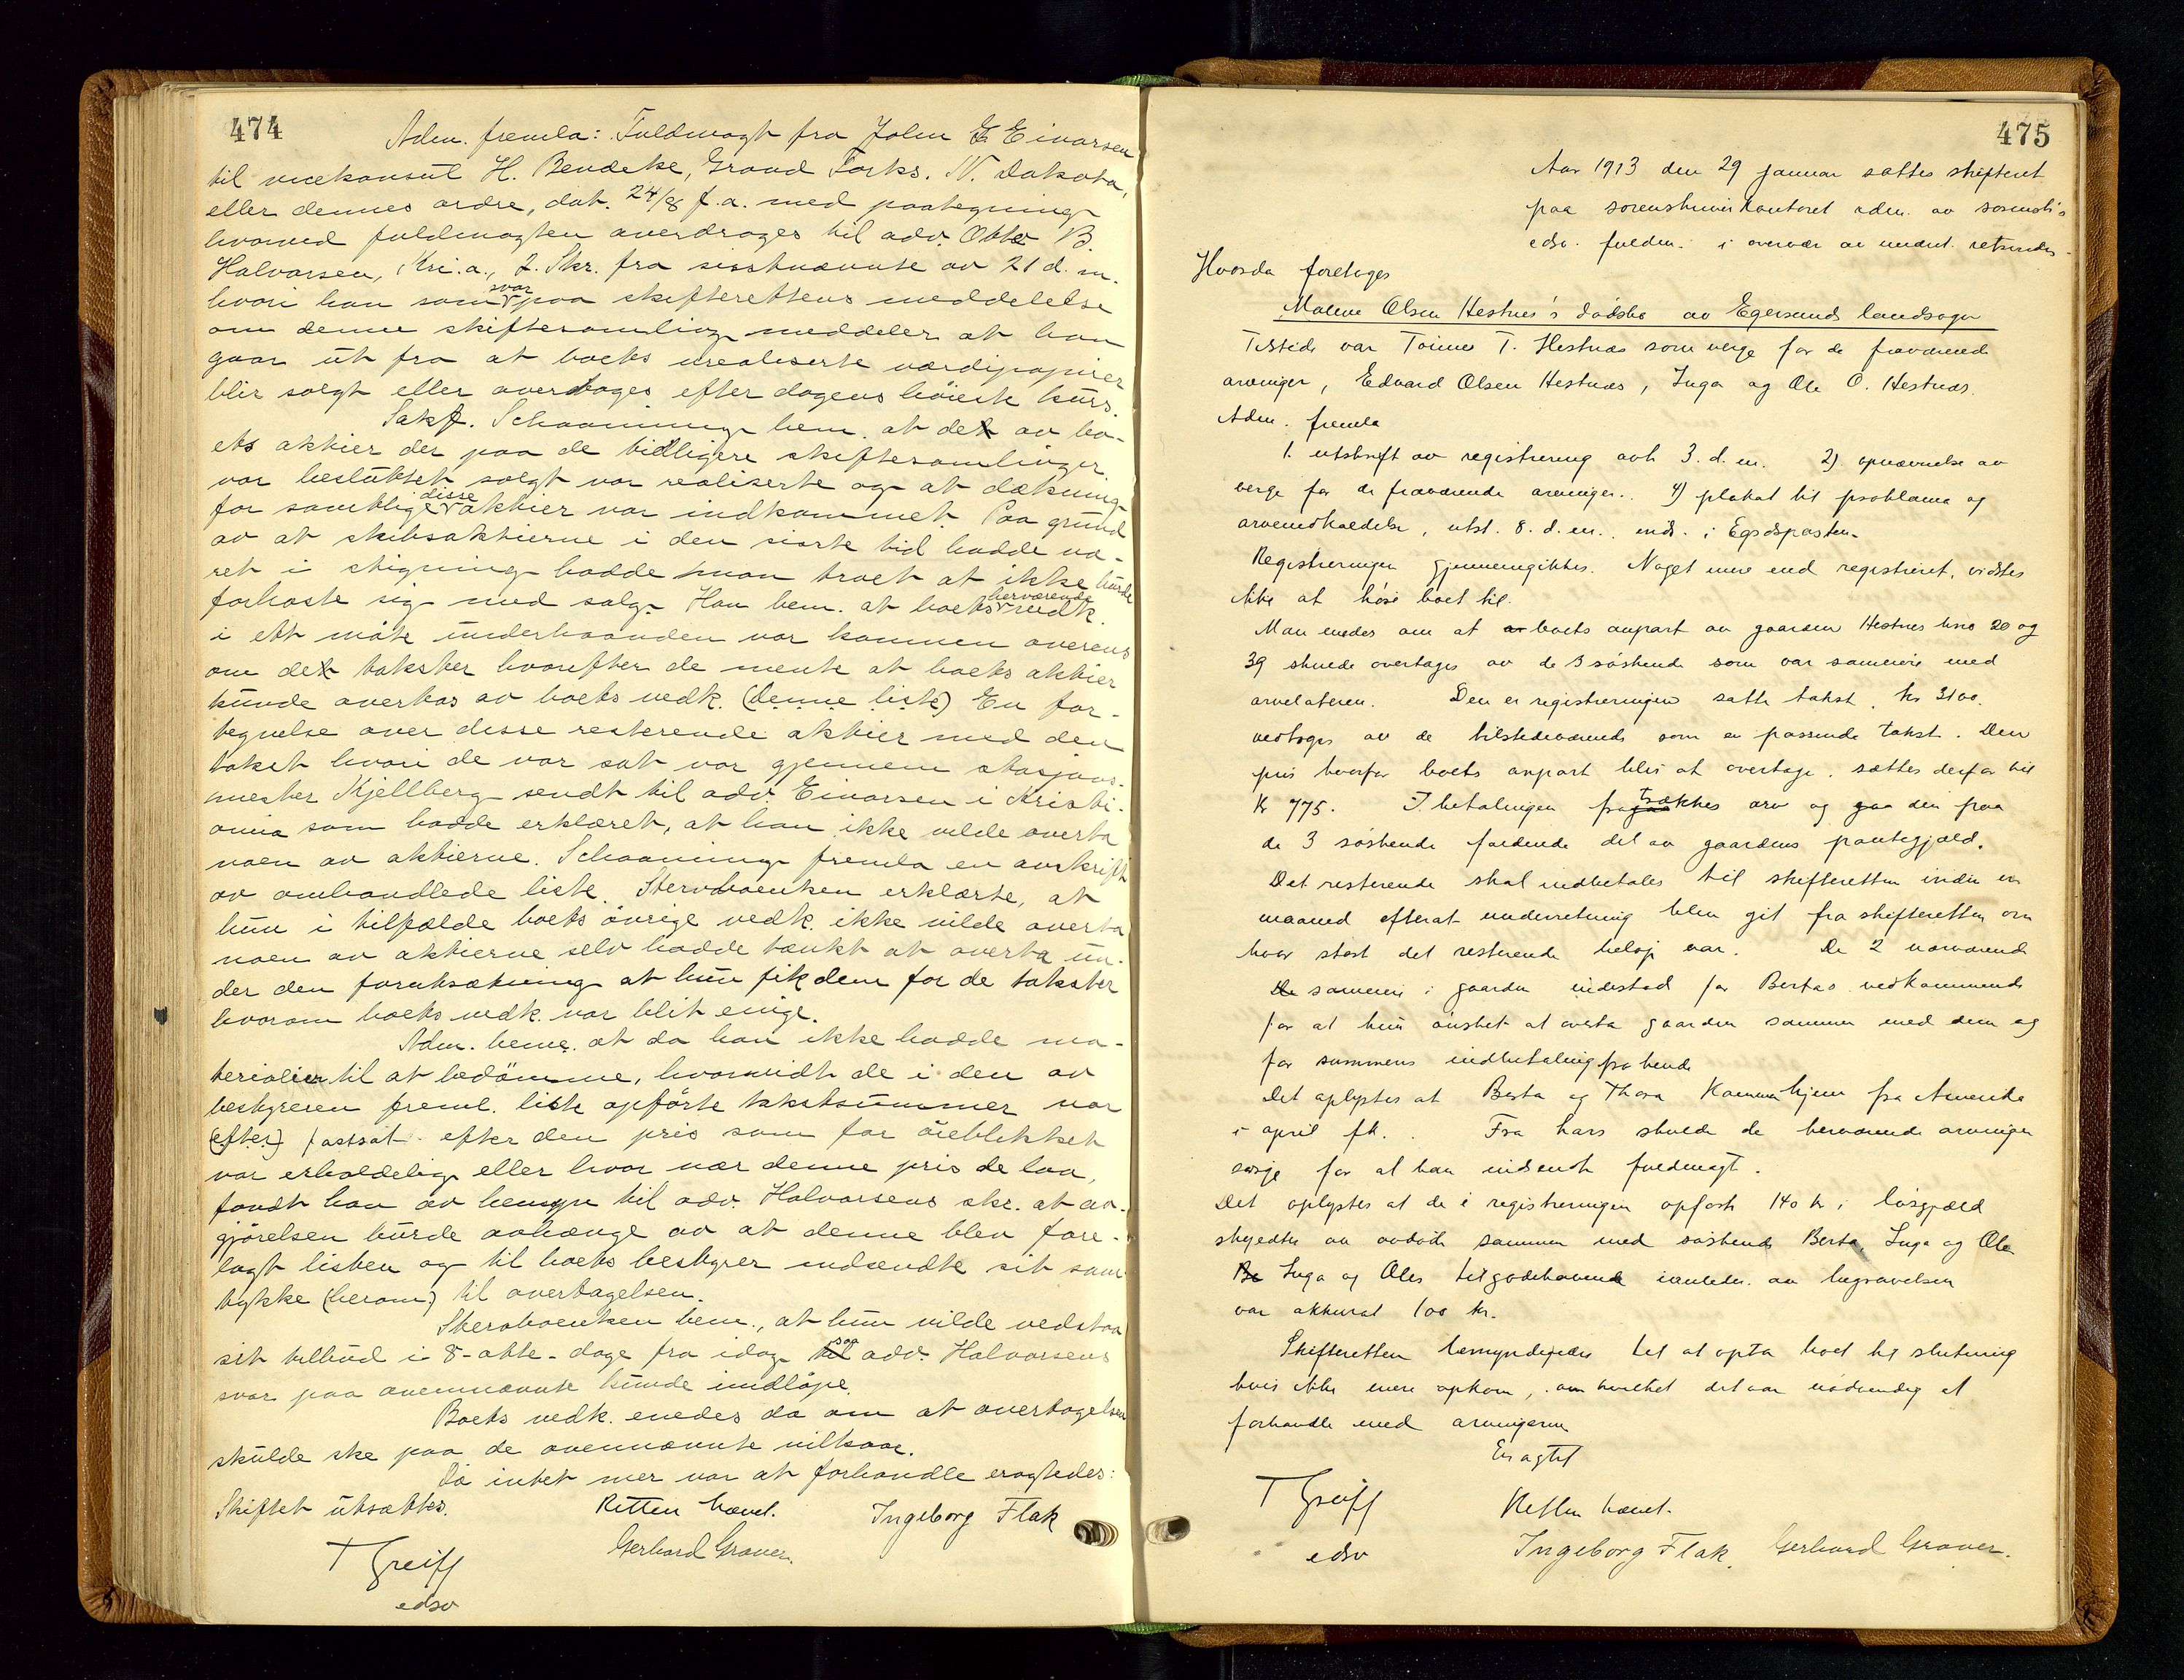 474
Adm. fremla: Fuldmagt fra John E. Einarsen
til vicekonsul H. Bendeke, Grand Forks. N. Dakota,
eller dennes ordre, dat. 24/8 f.a. med paategning
hvorved fuldmagten averdrages til adv. Otto B.
Halvorsen, Kri.a., 2. Skr. fra sisstnævnte av 21 d. m.
hvori han som svar paa skifterettens meddelelse
om denne skiftesamling meddeler at han
gaar ut fra at boets urealiserte værdipapirer
blir solgt eller overdrages efter dagens høieste kurs.
Sakf. Schaanning bem. at de av bo-
ets aktier der paa de tidligere skiftesamlinger
var besluttet solgt var realiserte og at dækning
for samtlige disse aktier var indkommet. Paa grund
av at skibsaktierne i den siste tid hadde væ-
ret i stigning hadde man troet at ikke burde
forhaste sig med salg. Han bem. at boets herværende vedk.
i ett møte underhaanden var kommen overens
om de takster hvorefter de mente at boets aktier
kunde overtas av boets vedk. (denne liste) En for-
tegnelse over disse resterende aktier med den
takst hvori de var sat var gjennem stasjons-
mester Kjellberg sendt til adv. Einarsen i Kristi-
ania som hadde erklæret, at han ikke vilde overta
noen av aktierne. Schaanning fremla en avskrift
av omhandlede liste. Stervboenken erklærte, at
hun i tilfælde boets øvrige vedk. ikke vilde overta
noen av aktierne selv hadde tænkt at overta un-
der den forutsætning at hun fik dem for de takster
hvorom boets vedk. var blit enige.
Adm. bem. at da han ikke hadde ma-
terialier til at bedømme, hvorvidt de i den av
bestyreren freml. liste opførte takstsummer var
(efter) fastsat efter den pris som for øieblikket
var erholdelig eller hvor nær denne pris de laa,
fandt han av hensyn til adv. Halvorsens skr. at av-
gjørelsen burde avhænge av at denne blev fore-
lagt listen og til boets bestyrer indsendte sit sam-
tykke (herom) til overtagelsen.
Stervboenken bem., at hun vilde vedstaa
sit tilbud i 8-otte-dage fra idag saa adv. Halvorsens
svar paa ovennævnte kunde indløpe.
Boets vedk. enedes da om at overtagelsen
skulde ske paa de ovennævnte vilkaar.
Da intet mer var at forhandle eragtedes:
Skiftet utsættes.
Retten hævet.
Ingeborg Flak
T Greiff
Gerhard Graver.
edsv
475
Aar 1913 den 29 januar sattes skifteret
paa sorenskriverkontoret adm. av sorenskr.s
edsv. fuldm. i overvær av undert. retsvidner
Hvorda foretages
Malene Olsen Hestnes's dødsbo av Egersunds landsogn
Tilstede var Tønnes T. Hestnæs som verge for de fraværende
arvinger, Edvard Olsen Hestnæs, Inga og Ole O. Hestnæs.
Adm. fremla
1. utskrift av registrering avh 3. d. m. 2). opnævnelse av
verge for de fraværende arvinger. 4) plakat til proklama og
arveindkaldelse, utst. 8. d. m. inds. i Egsdsposten.
Registreringen gjennemgikkes. Noget mere end registreret, vidstes
ikke at høre boet til.
Man enedes om at boets anpart av gaarden Hestnes bno 20 og
39 skulde overtages av de 3 søskende som var sameiere med
arvelateren. Den er registreringen satte takst, kr 3100.
vedtoges av de tilstedeværende som en passende takst. Den
pris hvorfor boets anpart blir at overtage, sættes derfor til
kr 775. I betalingen fratrækkes arv og den paa
de 3 søskende faldende del av gaardens pantegjæld.
Det resterende skal indbetales til skifteretten inden en
maaned efterat underretning blev git fra skifteretten om
hvor stort det resterende beløp var. De 2 nærværende
sameiere i gaarden indestod for Bertas vedkommende
for at hun ønsket at overta gaarden sammen med dem og
for summens indbetaling fra hende
Det oplystes at Berta og Thora kommer hjem fra Amerika
i april fk. Fra Lars skulde de herværende arvinger
sørge for at han indsendte fuldmagt.
Det oplystes at de i registreringen opførte 140 kr i løsgjæld
skyldtes av avdøde sammen med søskende Berta, Inga og Ole
Inga og Oles tilgodehavende i anledn. av begravelsen
var akkurat 100 kr.
Skifteretten bemyndigedes til at opta boet til slutning
hvis ikke mere opkom, om hvilket det var nødvendig at
forhandle med arvingerne
Eragtet
T Greiff
Retten hævet.
edsv
Ingeborg Flak. Gerhard Graver.